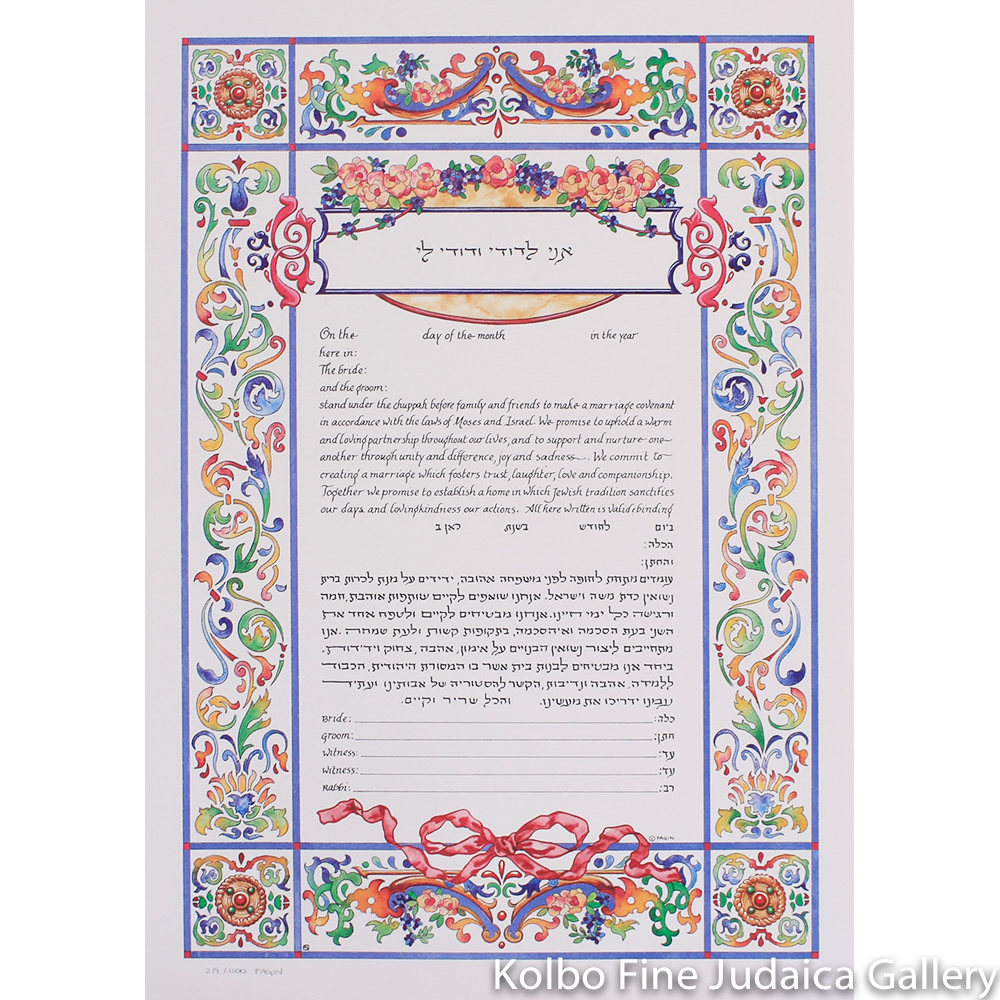 אני לדודי ודודי לי
On the day of the month in the year
here in:
The bride:
and the groom:
stand under the chuppah before family and friends to make a marriage covenant
in accordance with the laws of Moses and Israel. We promise to uphold a warm
and loving partnership throughout our lives, and to support and nurture one
another through unity and difference, joy and sadness. We commit to
creating a marriage which fosters trust, laughter, love and companionship.
Together we promise to establish a home in which Jewish tradition sanctifies
our days and lovingkindness our actions. All here written is valid & binding
ביום לחודש בשנת כאן ב
הכלה:
והחתן:
עומדים מתחת לחופה לפני משפחה אהובה, ידידים על מנת לכרות ברית
נשואין כדת משה וישראל. אנחנו שואפים לקיים שותפות אוהבת, חמה
ורגישה ככל ימי חיינו. אנחנו מבטיחים לקיים ולטפח אחד את
השני בעת הסכמה ואי הסכמה, בתקופות קשות ולעת שמחה. אנו
מתחייבים ליצור נשואין הבנויים על אימון, אהבה, צחוק וידידות.
ביחד אנו מבטיחים לבנות בית אשר בו המסורת היהודית, הכבוד
ללמידה, אהבה ונדיבות, הקשר להסטוריה של אבותינו ועתיד
עמנו ידריכו את מעשינו. והכל שריר וקיים.
Bride: כלה:
Groom: חתן:
Witness: עד:
Witness: עד:
Rabbi: רב:
© FAGIN
/1100 FAGIN
Kolbo Fine Judaica Gallery